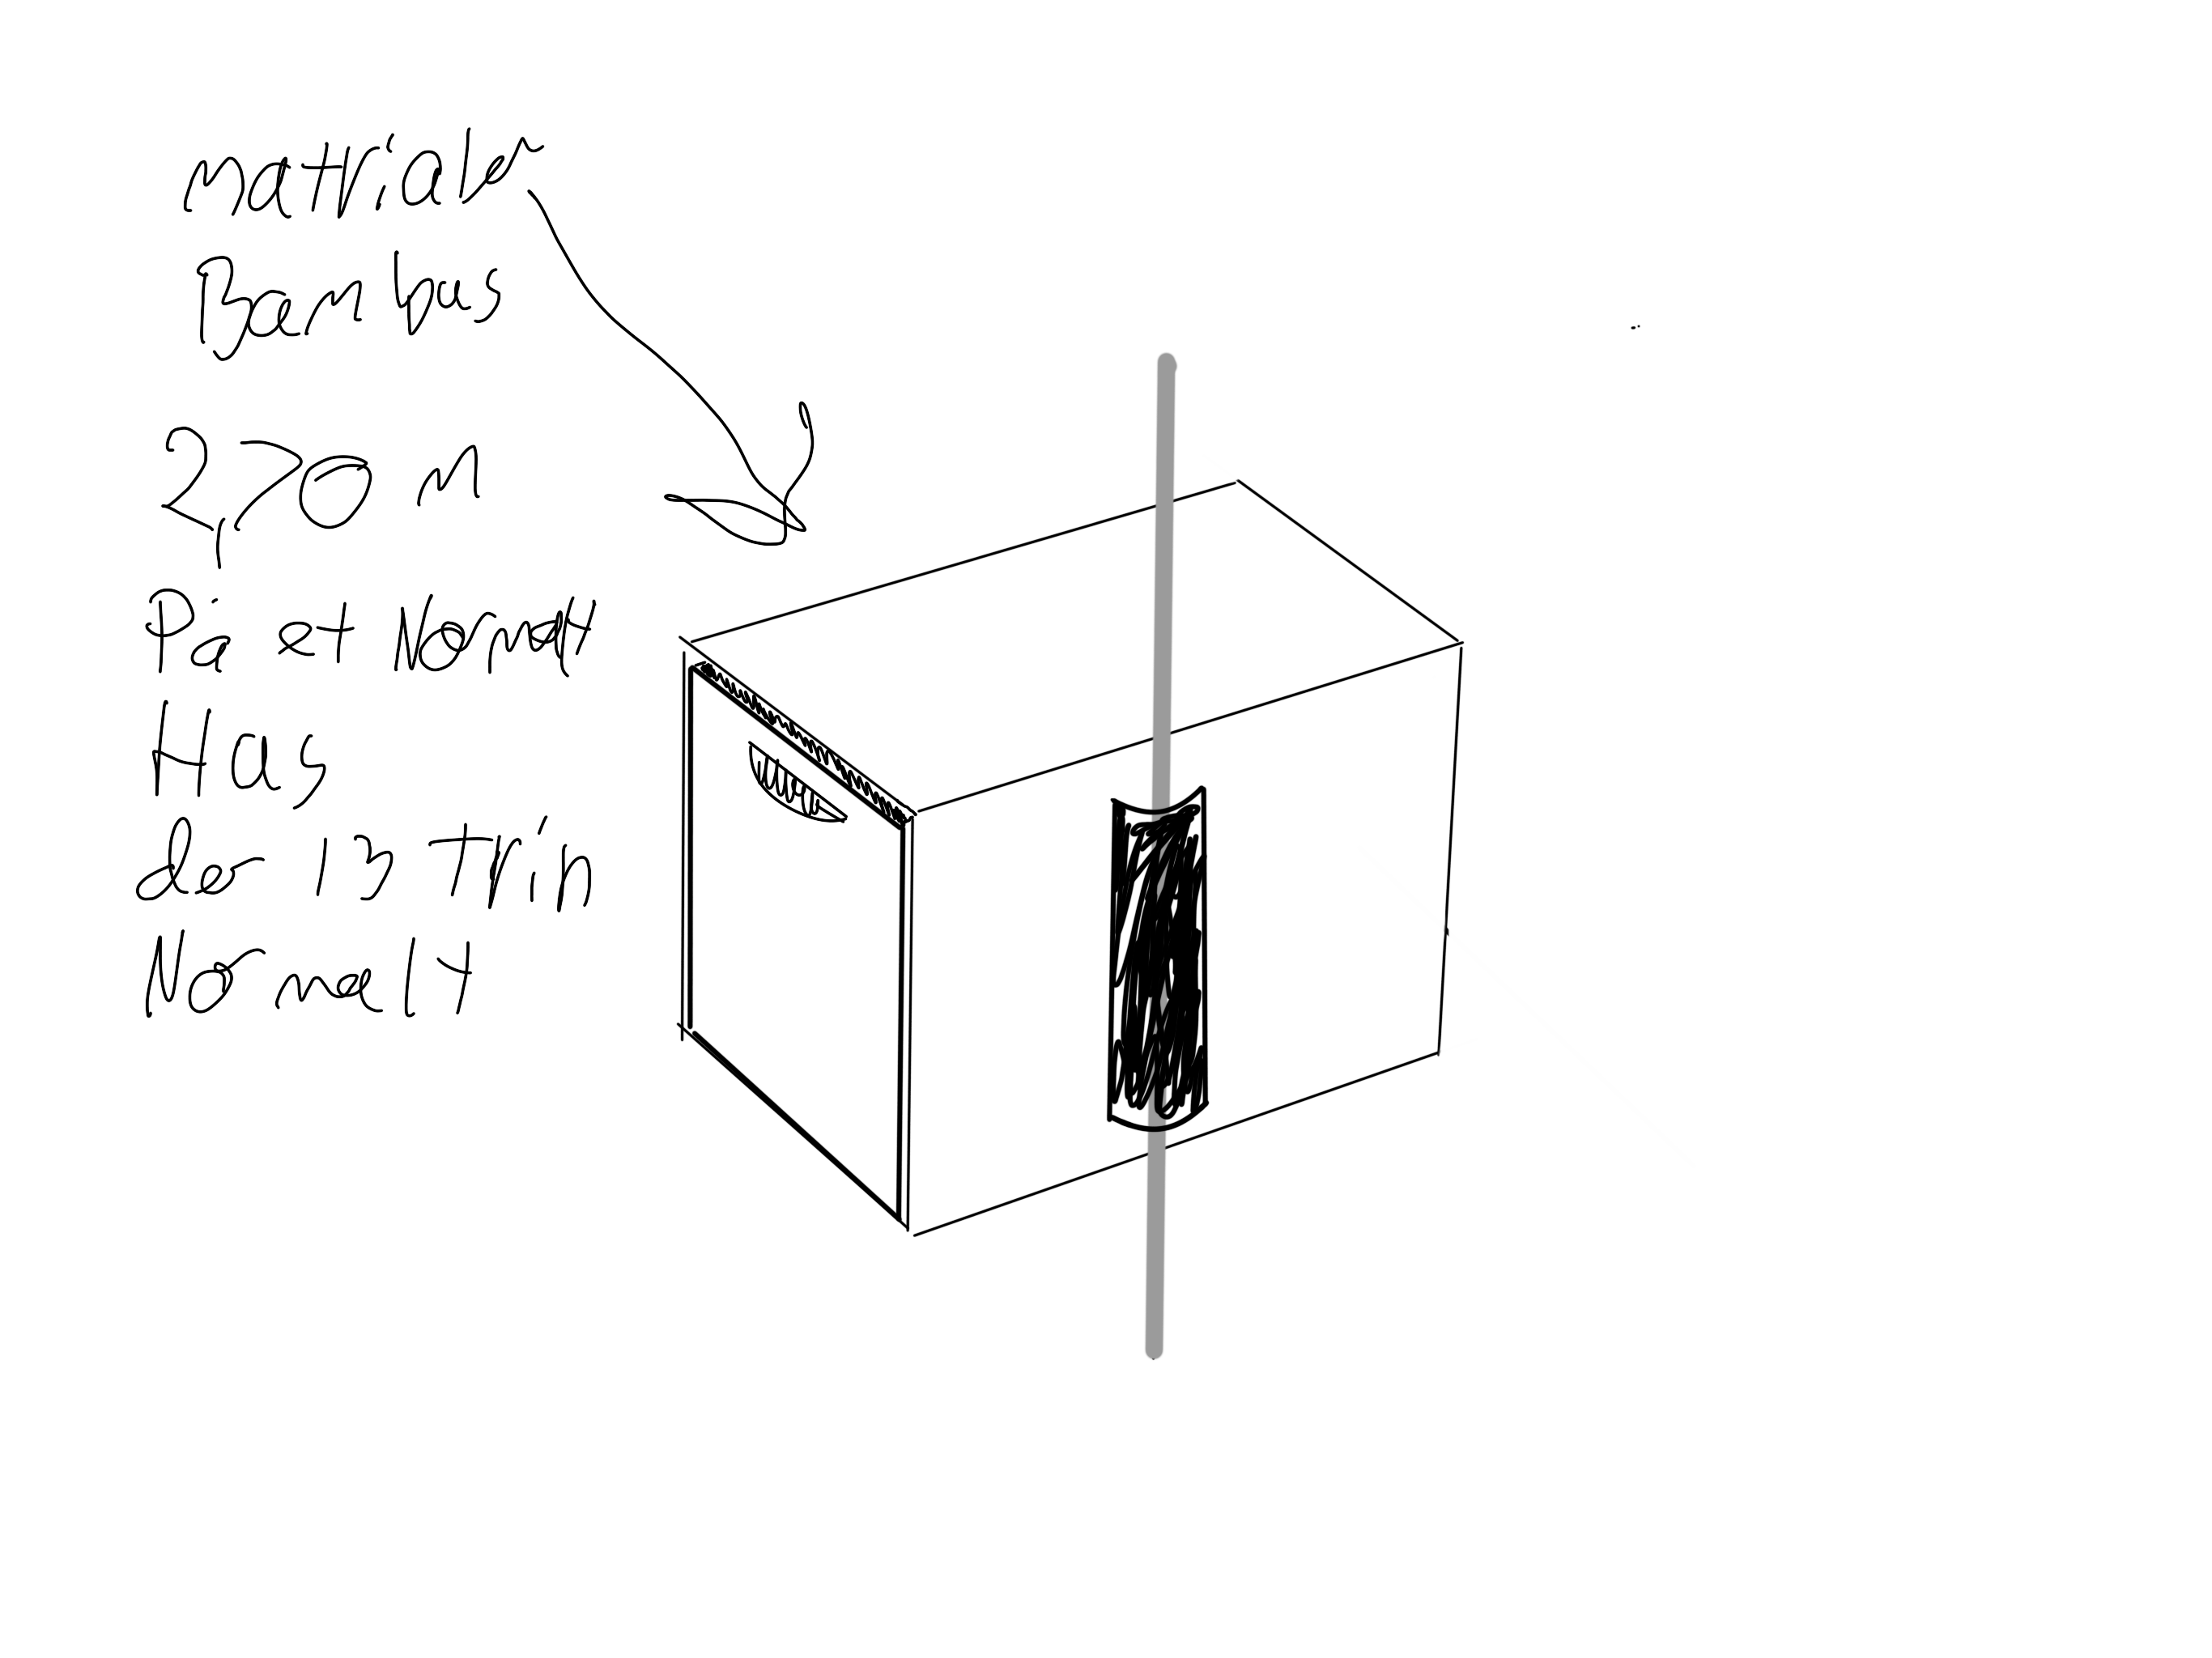 matrialer
Bambus
2,70 m
På et Normalt
Hus
der 13 trin
Normalt